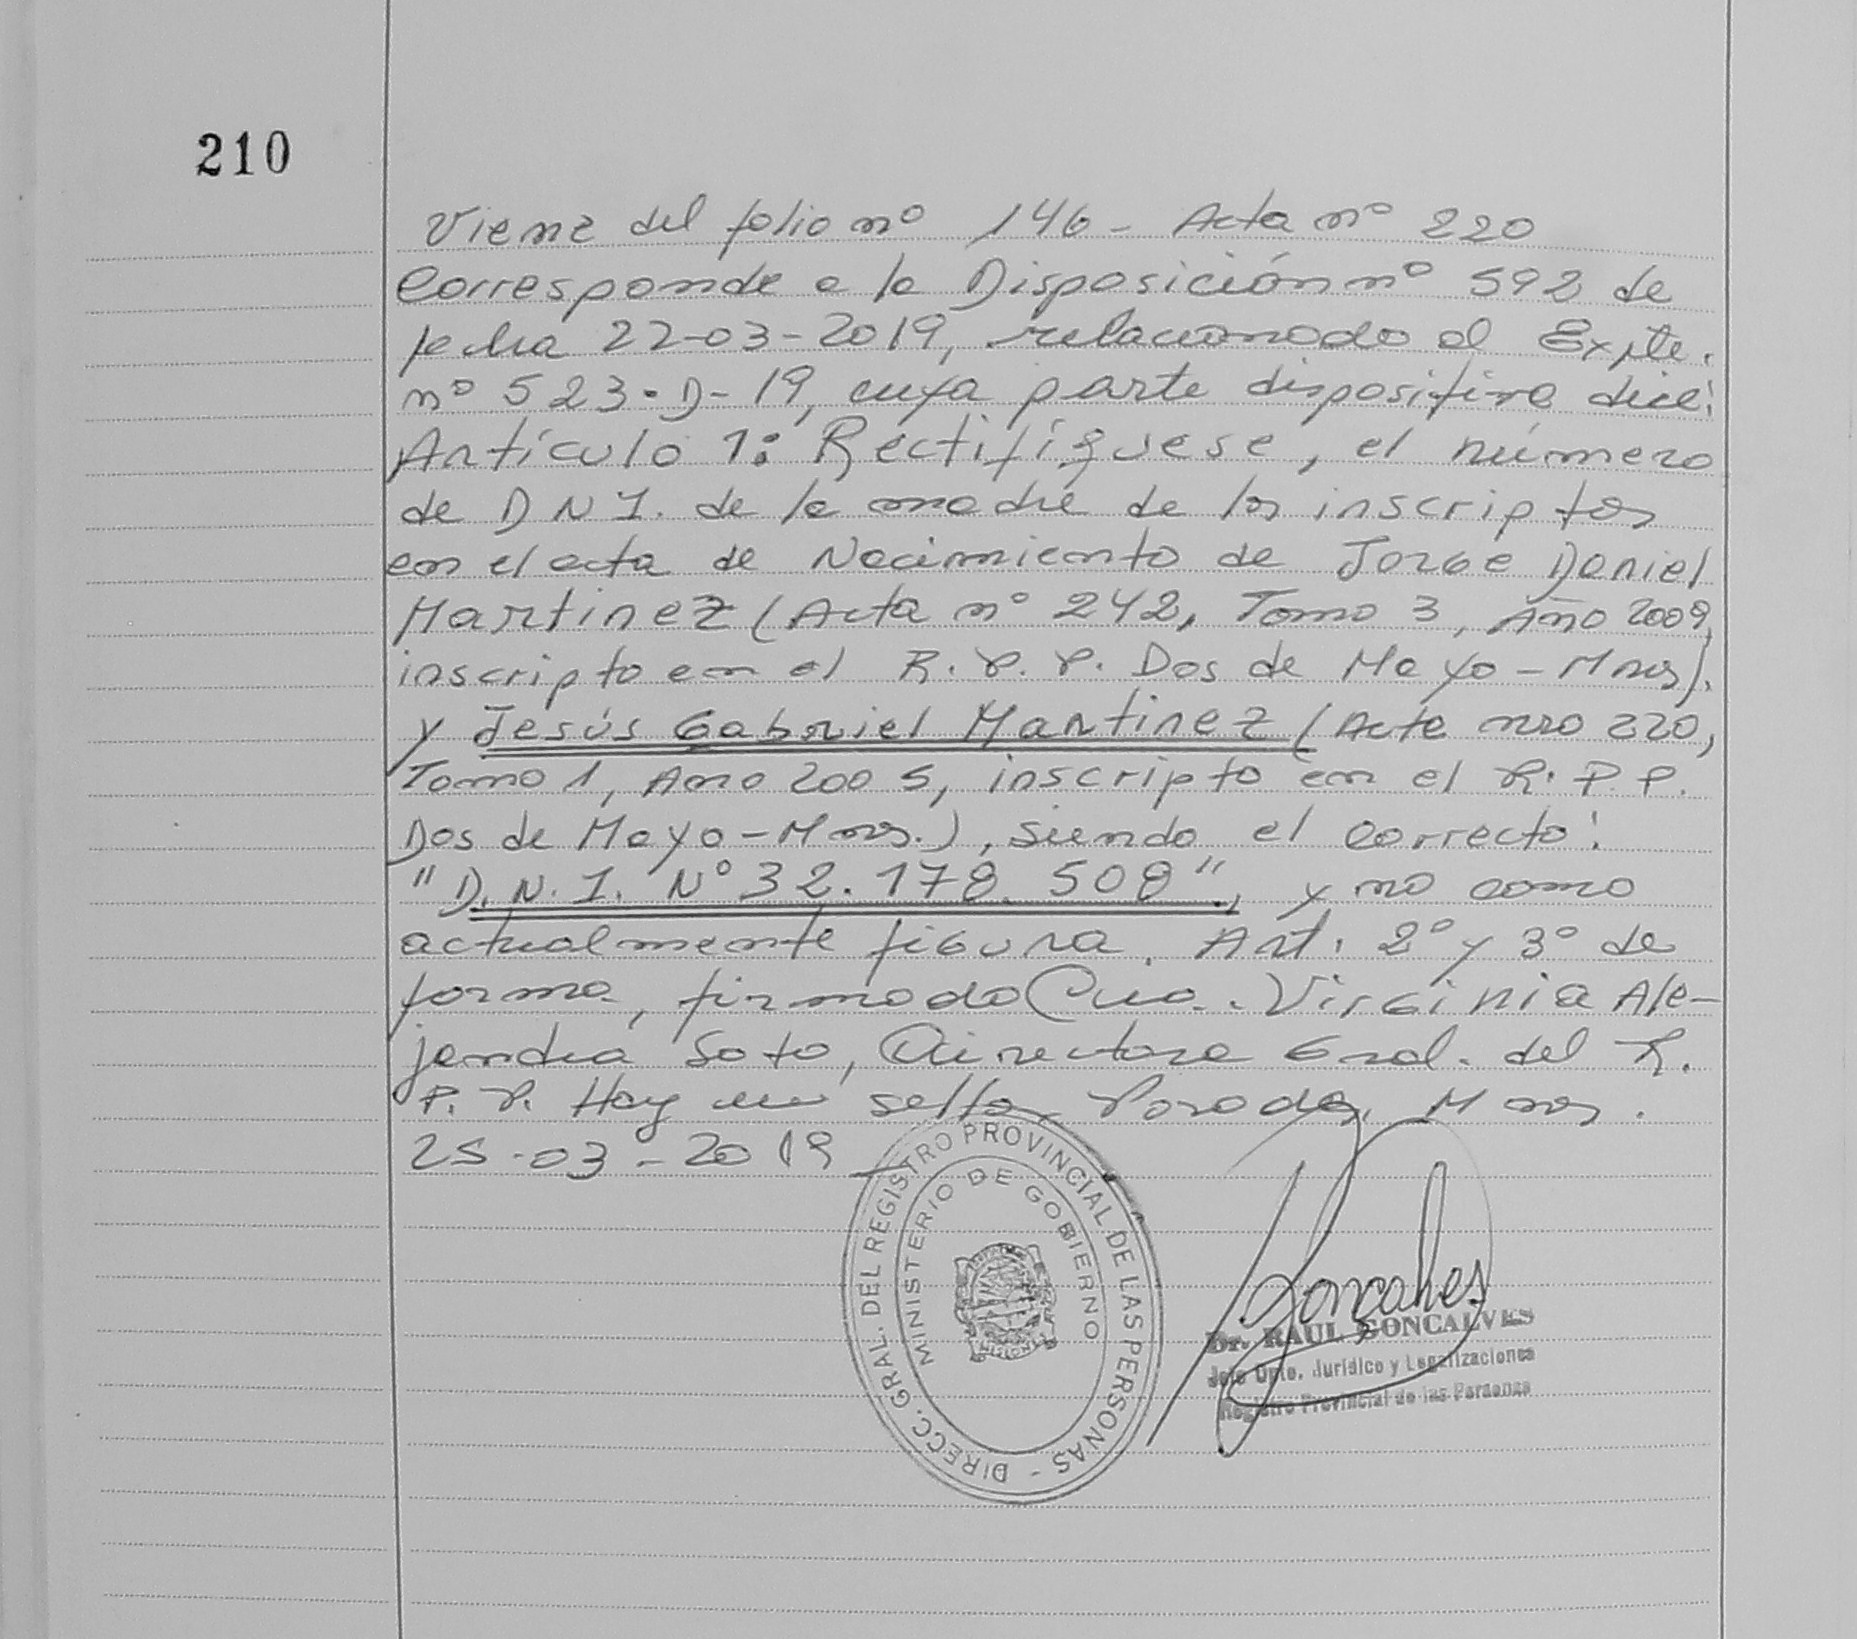 210
Viene del folio nº 146 - Acta nº 220
Corresponde a la Disposición nº 592 de
fecha 22-03-2019, relacionado al Expte.
nº 523-D-19, cuya parte dispositiva dice:
Artículo 1: Rectifíquese, el número
de DNI. de la madre de los inscriptos
en el acta de Nacimiento de Jorge Daniel
Martinez (Acta nº 242, Tomo 3, Año 2009,
inscripto en el R.P.P. Dos de Mayo - Mnes).
y Jesús Gabriel Martinez (Acta nro 220,
Tomo 1, Año 2005, inscripto en el R.P.P.
Dos de Mayo - Mnes.), siendo el correcto:
"D.N.I. Nº 32.178.508", y no como
actualmente figura. Art. 2º y 3º de
forma, firmado Virginia Ale-
jandra Soto, Directora Gral. del R.
P.P. Hay un sello. Posadas, Mnes.
25-03-2019
DIRECC. GRAL. DEL REGISTRO PROVINCIAL DE LAS PERSONAS -
MINISTERIO DE GOBIERNO
MISIONES
Goncalves
Dr. RAUL GONCALVES
Jefe Dpto. Jurídico y Legalizaciones
Registro Provincial de las Personas